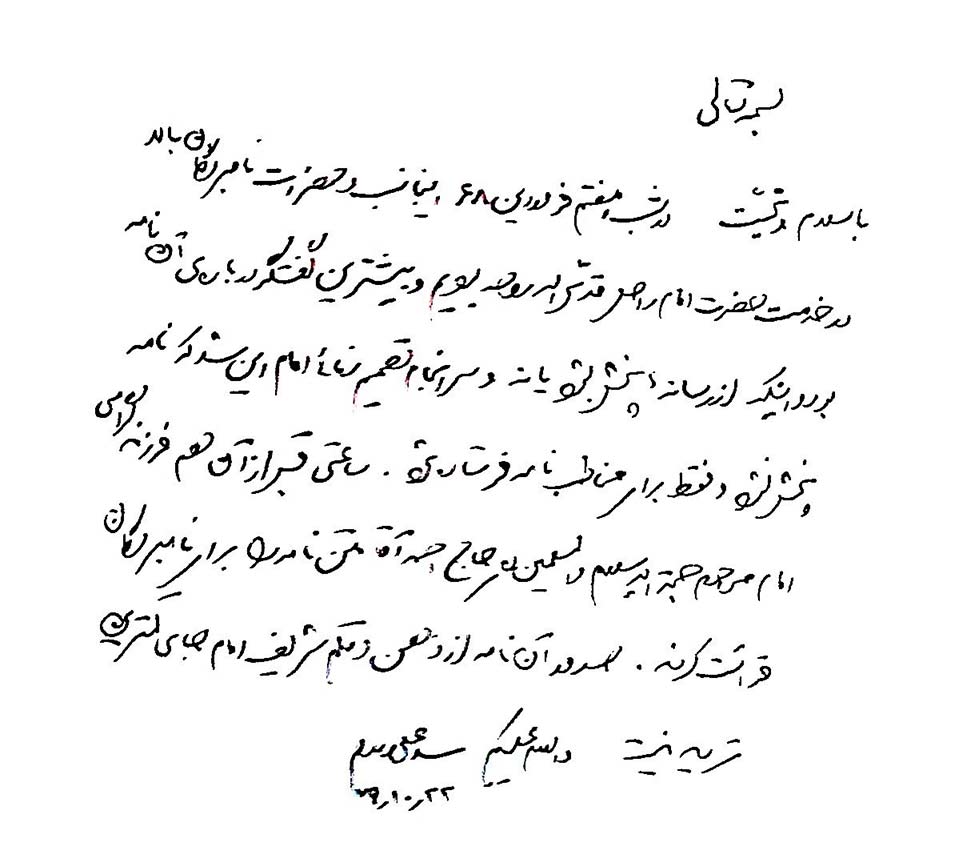 بسمه تعالی
با سلام و تحیّت در شب هفتم فروردین ۶۸، اینجانب و حضرات نامبردگان بالا
در خدمت حضرت امام راحل قدّس الله روحه بودیم و بیشترین گفتگو درباره‌ی آن نامه
بود و اینکه از رسانه‌ها پخش بشود یا نه و سرانجام تصمیم نهائی امام این شد که نامه
پخش نشود و فقط برای مخاطب نامه فرستاده شود. ساعتی قبل از آن هم فرزند گرامی
امام مرحوم حجة الاسلام والمسلمین حاج احمد آقا متن نامه را برای نامبردگان
قرائت کردند. صدور آن نامه از ذهن و قلم شریف امام جای کمترین
تردید نیست والسلام علیکم سید علی
۷۹٫۱۰٫۲۲